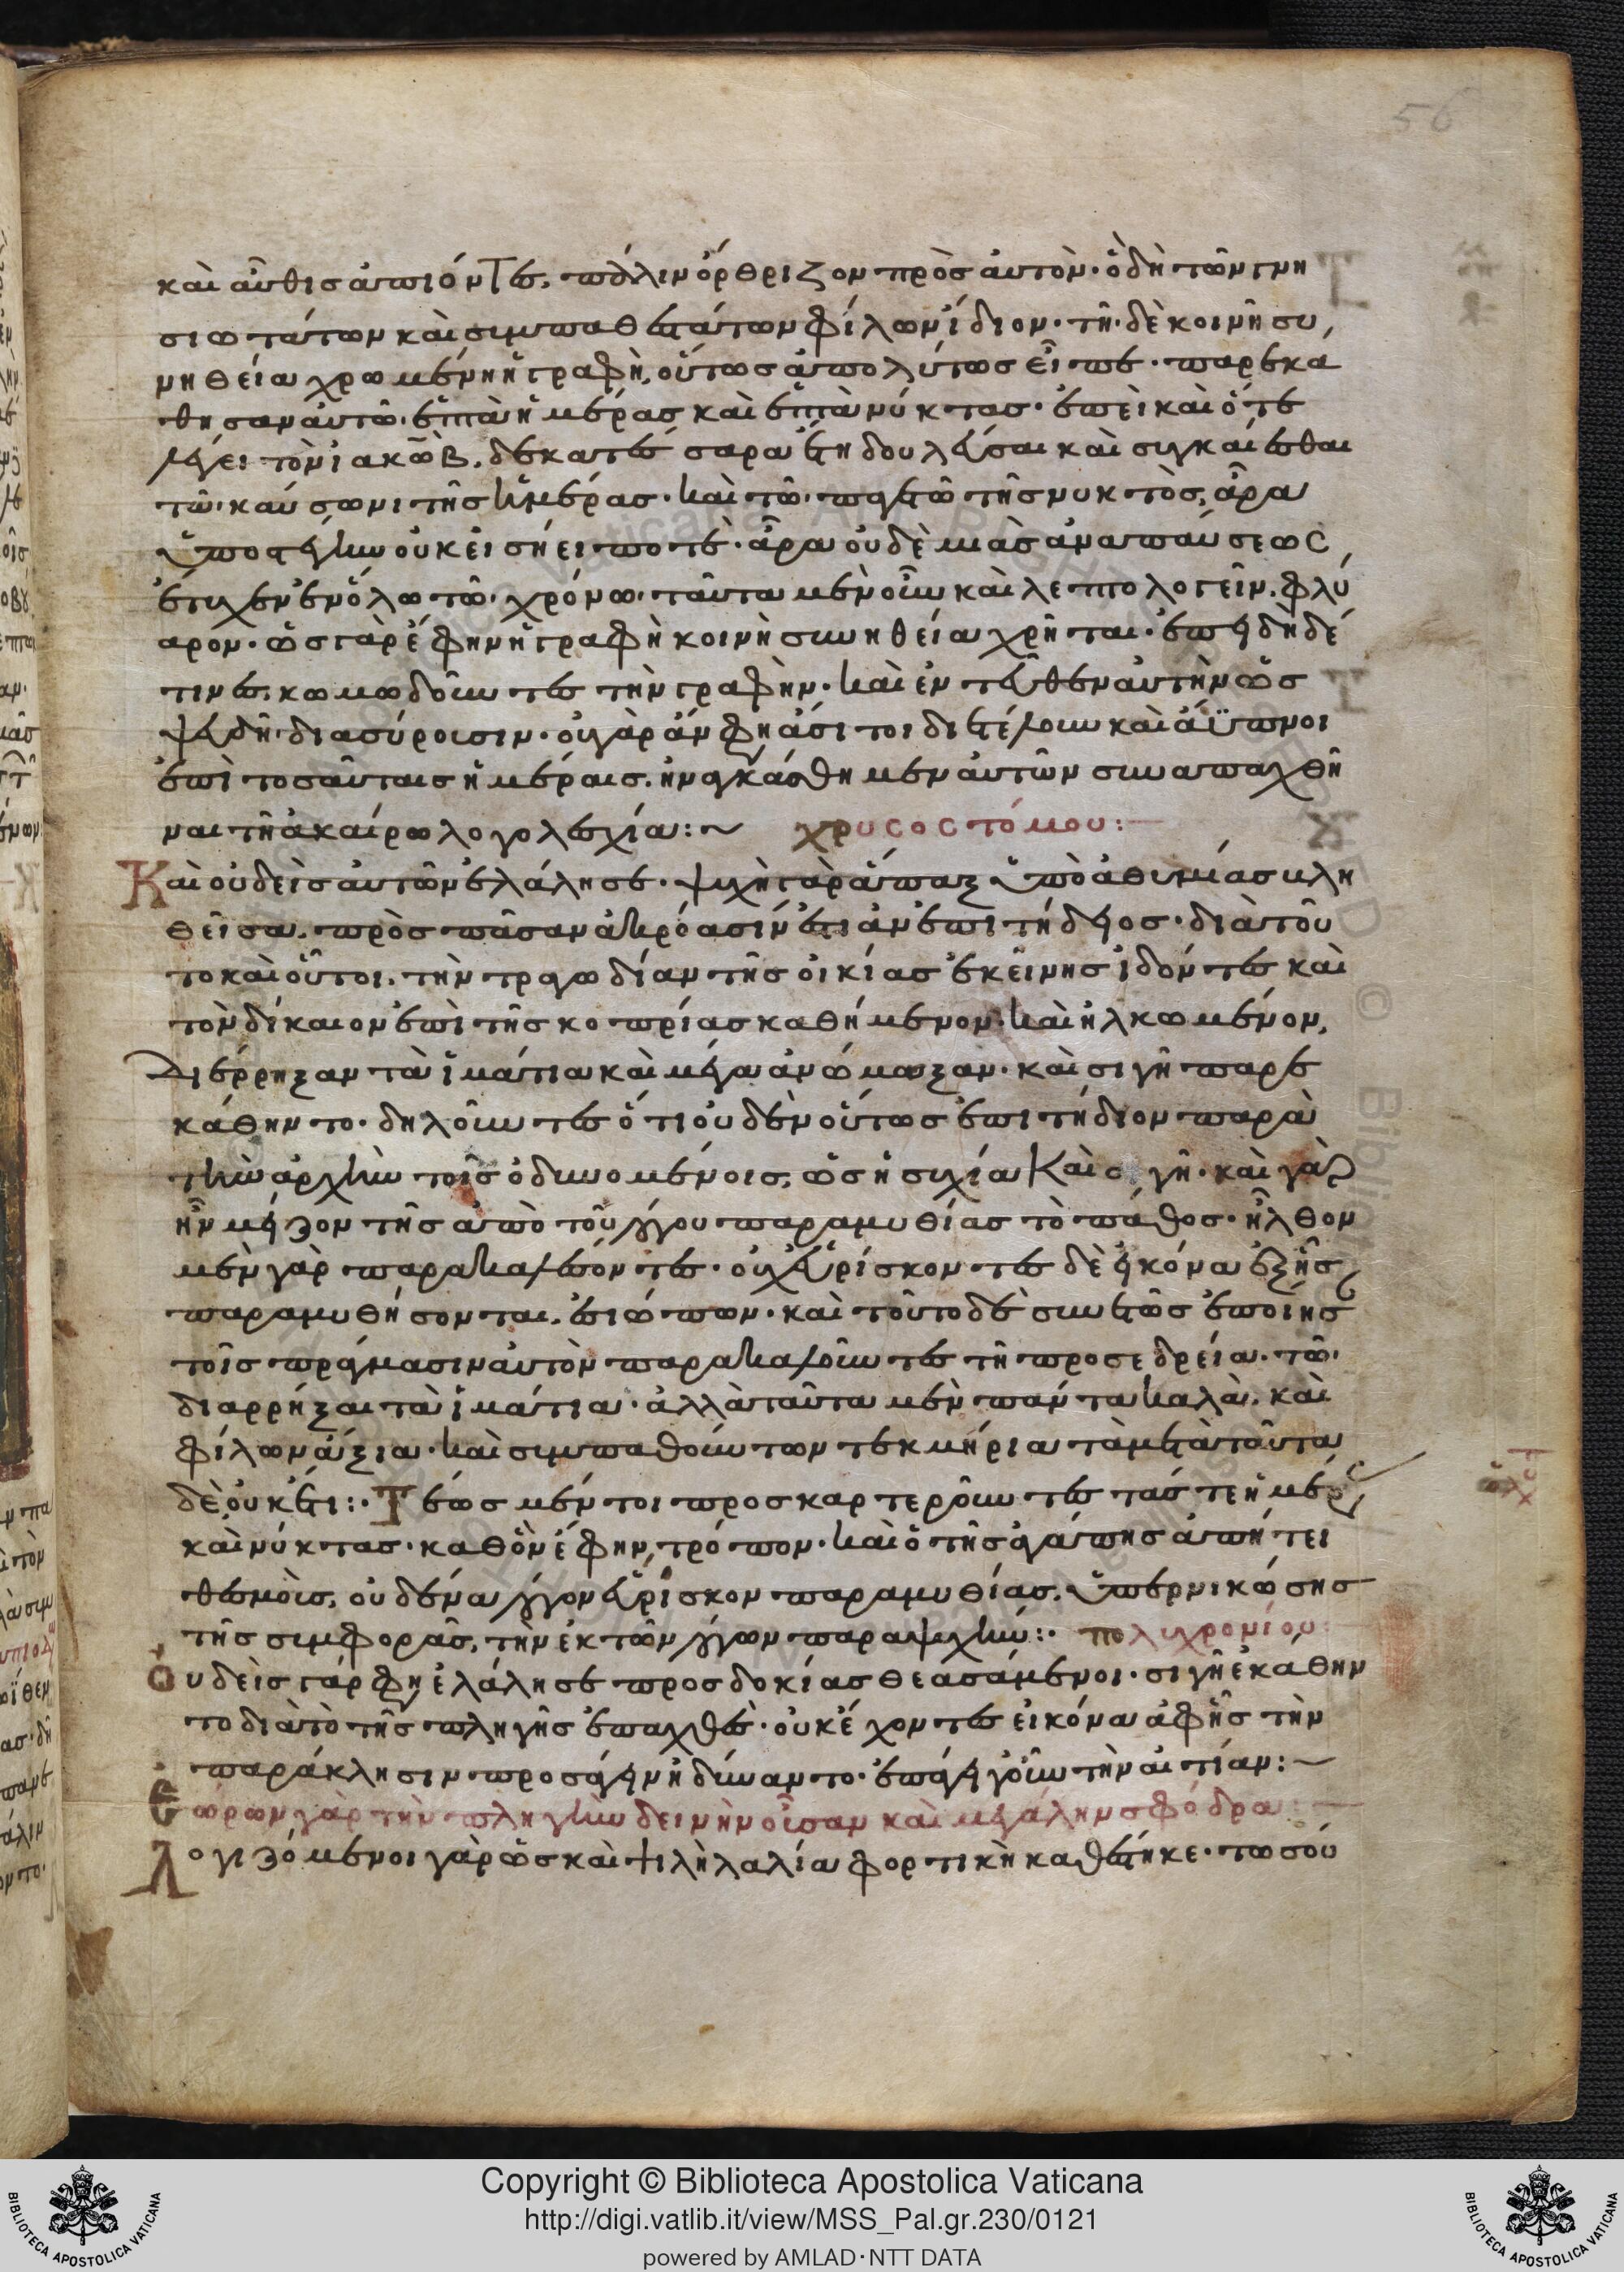 56
καὶ αὖθις ἀπιόντες, πάλιν ὄρθριζον πρὸς αὐτὸν· ὃ δὴ τῶν γνη
σιωτάτων καὶ συμπαθεστάτων φίλων ἴδιον· τῆ δὲ κοινῆ συ
νηθεία χρωμένη ἡ γραφὴ, οὕτως ἀπολύτως εἶπε· παρεκά
θησαν αὐτῶ ἑπτὰ ἡμέρας καὶ ἑπτὰ νύκτας· ἐπεὶ καὶ ὅτε
λέγει τὸν ἰακῶβ, δεκατέσσαρα ἔτη δουλεῦσαι καὶ συγκαίεσθαι
τῶ καύσωνι τῆς ἡμέρας· καὶ τῶ παγετῶ τῆς νυκτὸς, ἆρα
ὑπὸ στέγην οὐκ εἰσήει ποτὲ· ἆρα οὐδὲ μιᾶς ἀναπαύσεως
ἔτυχεν ἐν ὅλω τῶ χρόνω· ταῦτα μὲν οὖν καὶ λεπτολογεῖν φλύ
αρον· ὡς γὰρ ἔφην ἡ γραφὴ κοινὴ συνηθεία χρῆται· ἐπεὶ δὴ δέ
τινες κωμωδοῦντες τὴν γραφὴν· καὶ ἐντεῦθεν αὐτὴν ὡς
ψευδῆ διασύρουσιν· οὐ γὰρ ἂν φησὶ ἄσιτοι διετέλουν καὶ ἄϋπνοι
ἐπὶ τοσαύταις ἡμέραις, ἠναγκάσθημεν αὐτῶν συναπαχθῆ
ναι τῆ ἀκαίρω λογολεσχία:~ χρυσοστόμου:
Καὶ οὐδεὶς αὐτῶν ἐλάλησε· ψυχὴ γὰρ ἅπαξ ὑπὸ ἀθυμίας πλη
θεῖσα, πρὸς πᾶσαν ἀκρόασίν ἐστι ἀνεπιτήδειος· διὰ τοῦ
το καὶ οὗτοι, τὴν τραγωδίαν τῆς οἰκίας ἐκείνης ἰδόντες καὶ
τὸν δίκαιον ἐπὶ τῆς κοπρίας καθήμενον· καὶ ἡλκωμένον,
Διέρρηξαν τὰ ἱμάτια καὶ μέγα ἀνώμωξαν· καὶ σιγῆ παρε
κάθηντο· δηλοῦντες ὅτι οὐδὲν οὕτως ἐπιτήδιον παρὰ
τὴν ἀρχὴν τοῖς ὀδυνομένοις, ὡς ἡσυχία καὶ σιγῆ· καὶ γὰρ
ἦν μεῖζον τῆς ἀπὸ τοῦ λόγου παραμυθίας τὸ πάθος· ἦλθον
μὲν γὰρ παρακαλέσοντες· οὐχ εὑρίσκοντες δὲ εἰκόνα ἐξ ἧς
παραμυθήσονται, ἐσιώπων· καὶ τοῦτο δὲ συνετῶς ἐποίησ
τοῖς πράγμασιν αὐτὸν παρακαλοῦντες τῆ προσεδρεία· τῶ
διαρρῆξαι τὰ ἱμάτια· ἀλλὰ ταῦτα μὲν πάντα καλὰ, καὶ
φίλων ἄξια· καὶ συμπαθούντων τεκμήρια τὰ μετὰ ταῦτα
δὲ οὐκέτι:· Τέως μέντοι προσκαρτεροῦντες τάς τε ἡμέρας
καὶ νύκτας· καθ ὃν ἔφην, τρόπον· καὶ ὁ τῆς ἀγάπης ἀπήτει
θεσμὸς, οὐδένα λόγον εὕρισκον παραμυθίας, ὑπερνικώσης
τῆς συμφορᾶς, τὴν ἐκ τῶν λόγων παραψυχήν:· πολυχρονίου:
Οὐδεὶς γάρ φησὶ ἐλάλησε προσδοκίας θεασάμενοι· σιγῆ ἐκάθην
το διὰ τὸ τῆς πληγῆς ἐπαχθές· οὐκ ἔχοντες εἰκόνα ἀφ ἧς τὴν
παράκλησιν προσάγειν ἠδύναντο· ἐπάγει γοῦν τὴν αἰτίαν:~
Εώρων γὰρ τὴν πληγὴν δεινὴν οὖσαν καὶ μεγάλην σφόδρα:
Λογιζόμενοι γὰρ ὡς καὶ ψιλὴ λαλία φορτικὴ καθέστηκε· τω σού
Copyright © Biblioteca Apostolica Vaticana
http://digi.vatlib.it/view/MSS_Pal.gr.230/0121
powered by AMLAD·NTT DATA
BIBLIOTECA APOSTOLICA VATICANA
BIBLIOTECA APOSTOLICA VATICANA